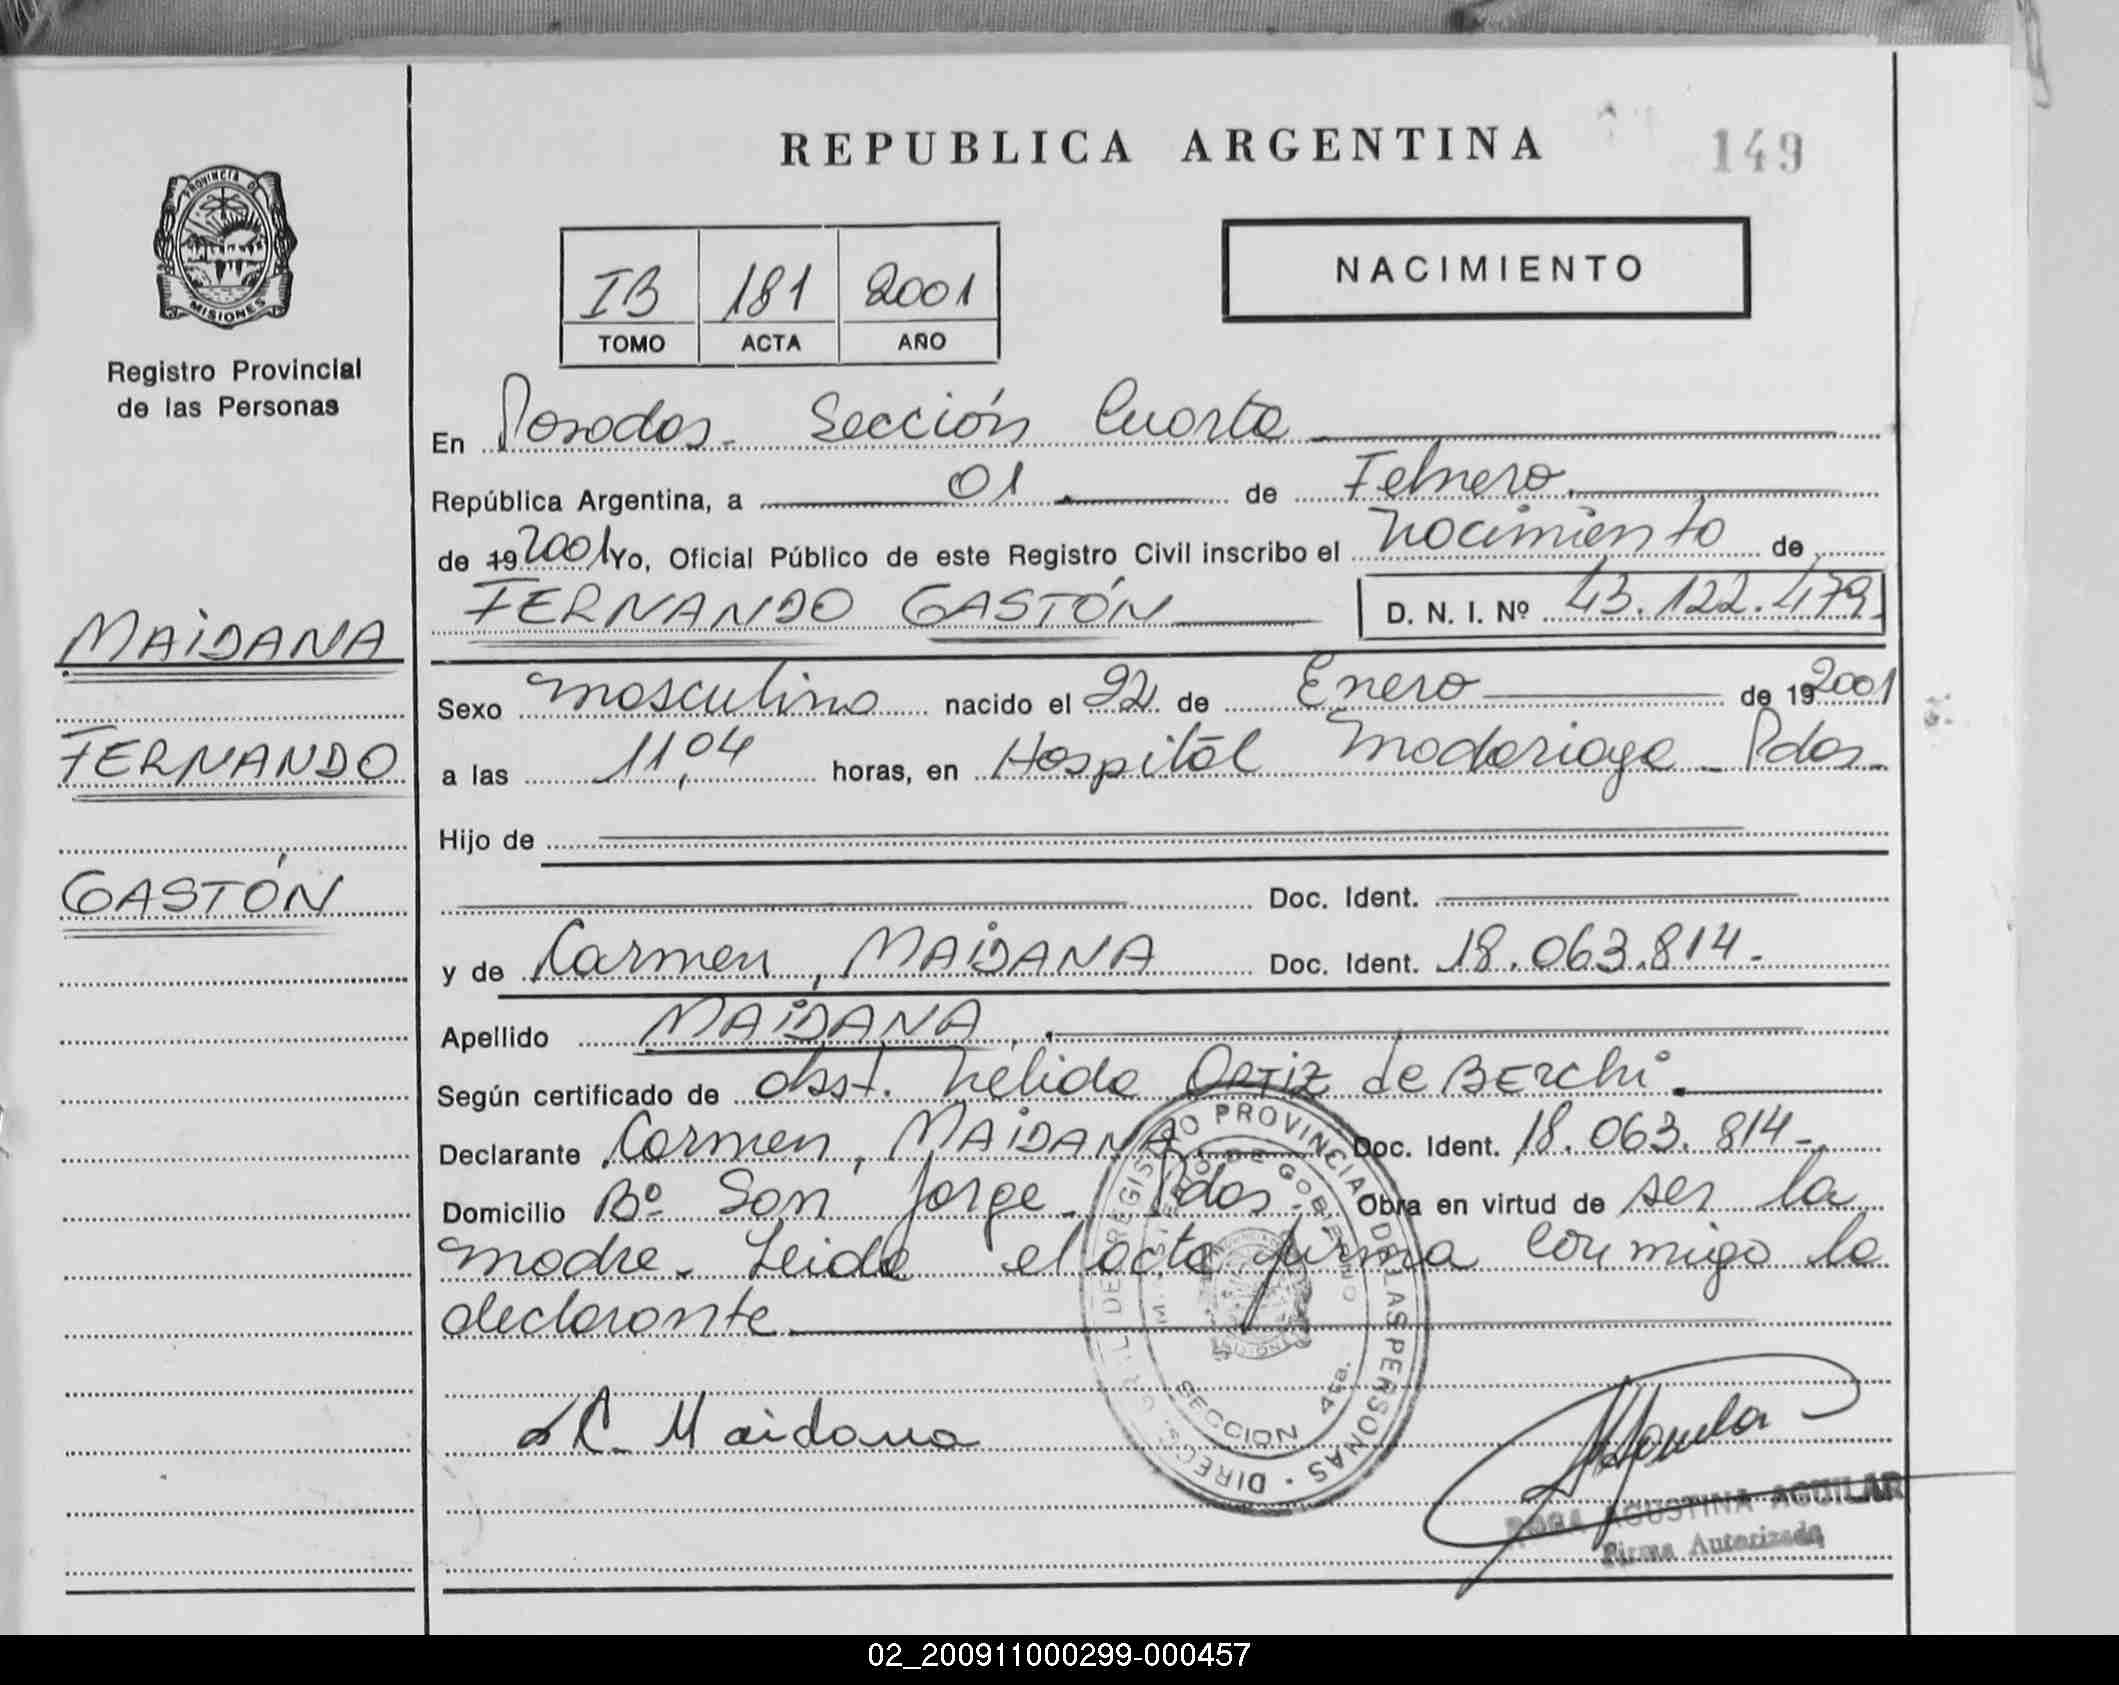 REPUBLICA ARGENTINA
149
PROVINCIA DE
MISIONES
Registro Provincial
de las Personas
IB 181 2001
TOMO ACTA AÑO
NACIMIENTO
En Posadas. Sección Cuarta
República Argentina, a 01 de Febrero
de 19 2001 Yo, Oficial Público de este Registro Civil inscribo el nacimiento de
FERNANDO GASTÓN D. N. I. Nº 43.122.479
MAIDANA
FERNANDO
GASTÓN
Sexo masculino nacido el 22 de Enero de 19 2001
a las 11,04 horas, en Hospital Madariaga - Pdas.
Hijo de
Doc. Ident.
y de Carmen, MAIDANA Doc. Ident. 18.063.814.
Apellido MAIDANA
Según certificado de obst. Nélida ORTIZ de BERchi.
Declarante Carmen, MAIDANA Doc. Ident. 18.063.814-
Domicilio Bº San Jorge - Pdas. Obra en virtud de ser la
madre. Leida el acta firma conmigo la
declarante
C. Maidana
REGISTRO PROVINCIAL DE LAS PERSONAS
DE GOBIERNO
SECCION 4ta.
ROSA AGUSTINA AGUILAR
Firma Autorizada
02_200911000299-000457